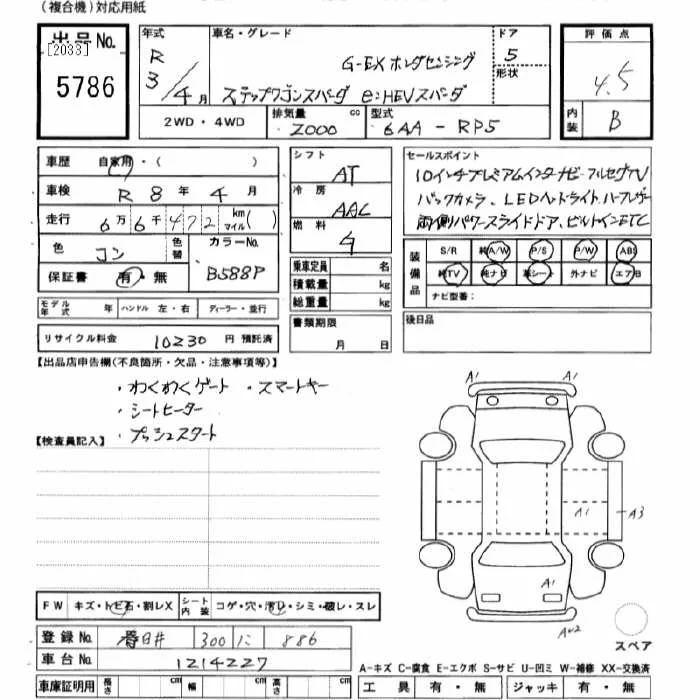 (複合機)対応用紙
出品No.
[2033]
5786
年式
R
3/4月
車名・グレード
G-EX ホンダセンシング
ステップワゴンスパーダ e:HEVスパーダ
ドア
5
形状
評価点
4.5
内装
B
2WD・4WD
排気量
2000
cc
型式
6AA-RP5
車歴 自家用・( )
車検 R 8年 4月
走行 6万6千472 km マイル( )
色 コン
色替
カラーNo.
B588P
保証書 有・無
モデル年式 年 ハンドル 左・右 ディーラー・並行
リサイクル料金 10230円 預託済
シフト
AT
冷房
AAC
燃料
乗車定員 名
積載量 kg
総重量 kg
書類期限
月 日
セールスポイント
10インチプレミアムインターナビ・フルセグTV
バックカメラ、LEDヘッドライト、ハーフレザー
両側パワースライドドア、ビルトインETC
装備品
S/R 純A/W P/S P/W ABS
純TV 純ナビ 革シート 外ナビ エアB
ナビ型番:
後日品
【出品店申告欄(不良箇所・欠品・注意事項等)】
・わくわくゲート ・スマートキー
・シートヒーター
・プッシュスタート
【検査員記入】
A1 A1
A1 A3
A1
AU2
スペア
FW キズ・トビ石・割レX シート内装 コゲ・穴・汚レ・シミ・破レ・スレ
登録No. 春日井 300 に 886
車台No. 1214227
車庫証明用 長さ cm 幅 cm 高さ cm
A-キズ C-腐食 E-エクボ S-サビ U-凹ミ W-補修 XX-交換済
工具 有・無 ジャッキ 有・無